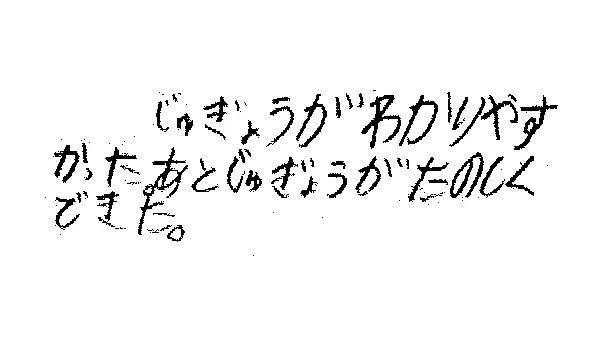 じゅぎょうがわかりやす
かった。あとじゅぎょうがたのしく
できた。